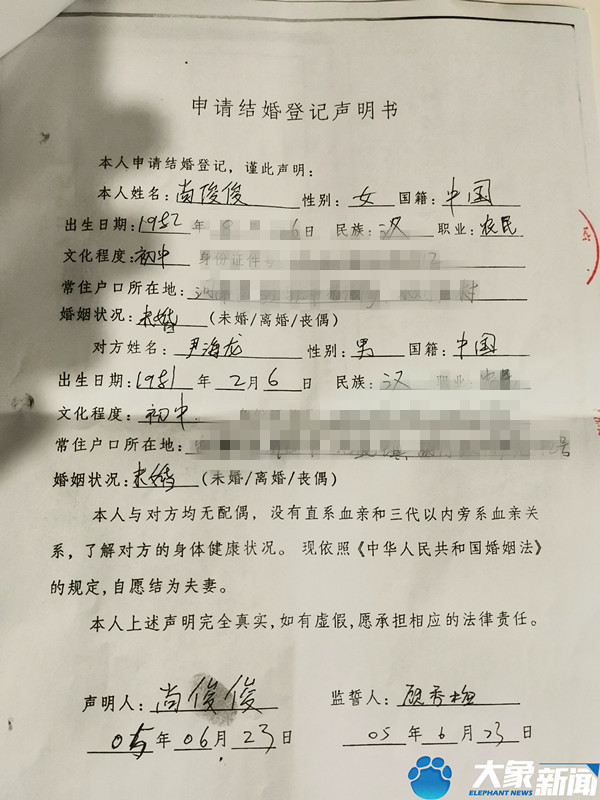 申请结婚登记声明书
本人申请结婚登记，谨此声明：
本人姓名：尚俊俊 性别：女 国籍：中国
出生日期：1982年8月 6日 民族：汉 职业：农民
文化程度：初中 身份证件号
常住户口所在地：
婚姻状况：未婚 (未婚/离婚/丧偶)
对方姓名：尹海龙 性别：男 国籍：中国
出生日期：1981年2月6日 民族：汉 职业：
文化程度：初中
常住户口所在地： 号
婚姻状况：未婚 (未婚/离婚/丧偶)
本人与对方均无配偶，没有直系血亲和三代以内旁系血亲关
系，了解对方的身体健康状况。现依照《中华人民共和国婚姻法》
的规定，自愿结为夫妻。
本人上述声明完全真实，如有虚假，愿承担相应的法律责任。
声明人：尚俊俊 监誓人：顾秀梅
05年06月23日 05年6月23日
大象新闻
ELEPHANT NEWS